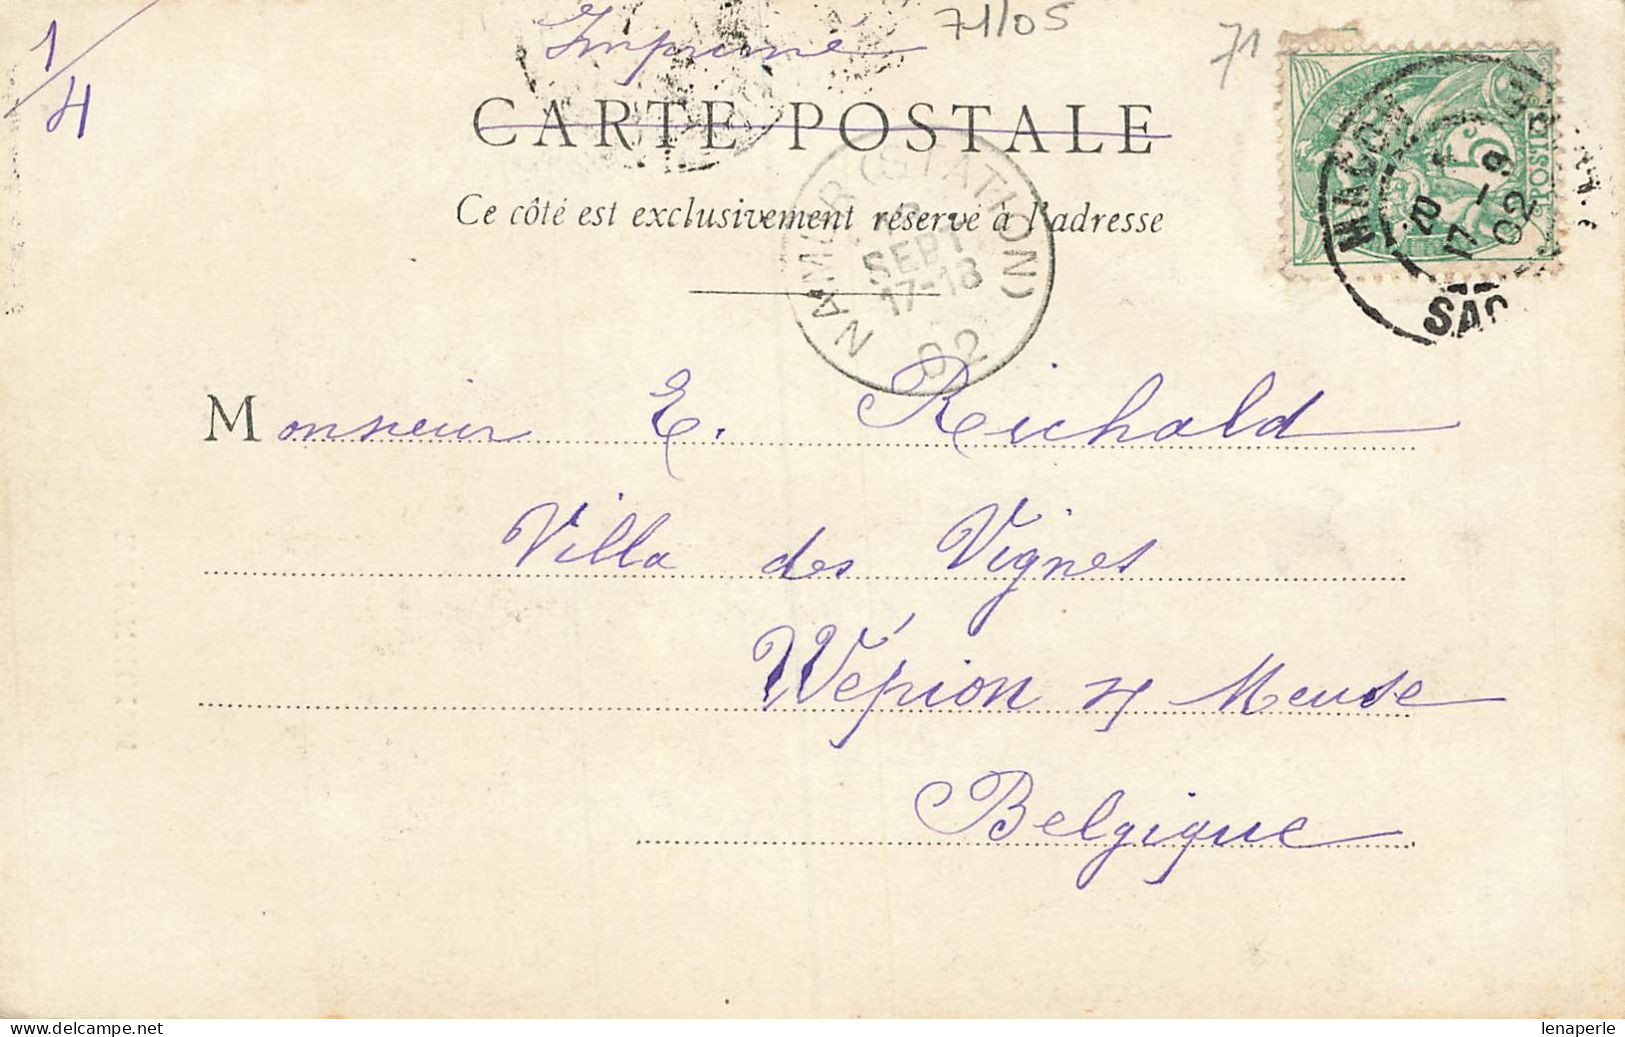 1/4
Imprimé
71/05
71
CARTE POSTALE
Ce côté est exclusivement réservé à l'adresse
NAMUR (STATION)
SEPT
17-18
02
MACON
17 - 9
02
5
POSTES
Monsieur E. Richald
Villa des Vignes
Wépion s/ Meuse
Belgique
delcampe.net
lenaperle